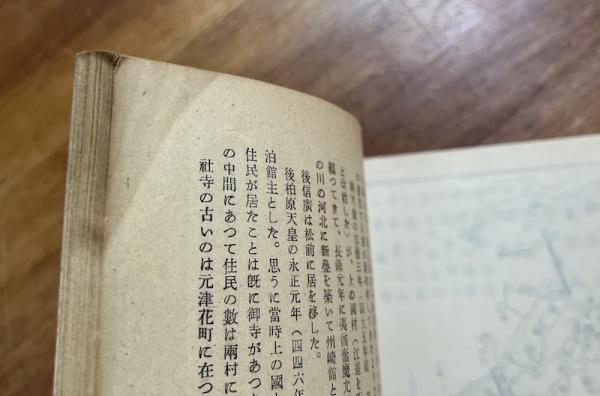 と改姓した）が、上の國村（江差を距
頼つてきて、長祿元年に夷酋
の川の河北に新壘を築いて州崎舘と
後信廣は松前に居を移した。
後柏原天皇の永正元年（四四六年
泊館主とした。思うに當時上の國
住民が居たことは旣に御寺があつ
の中間にあつて住民の數は兩村に
社寺の古いのは元津花町に在つ